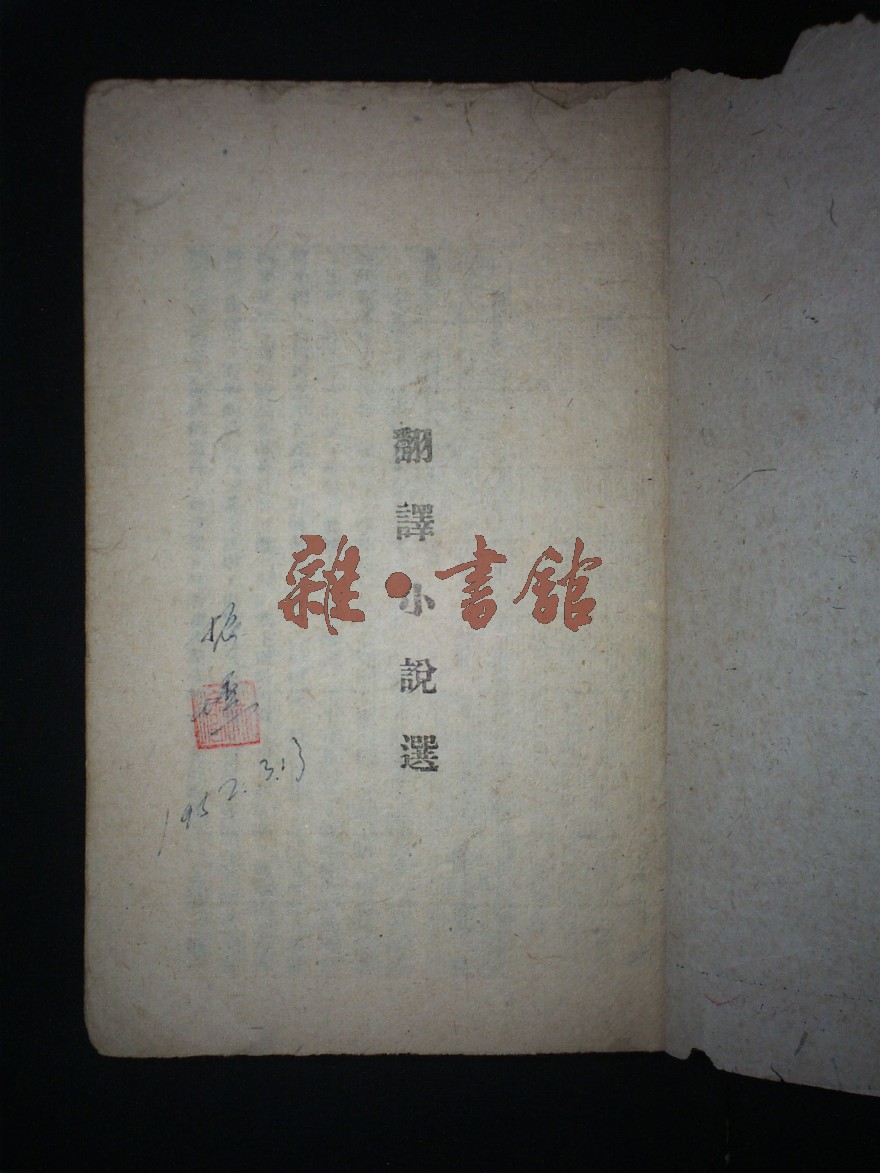 翻譯小說選
雜·書館
振
1952.3.13